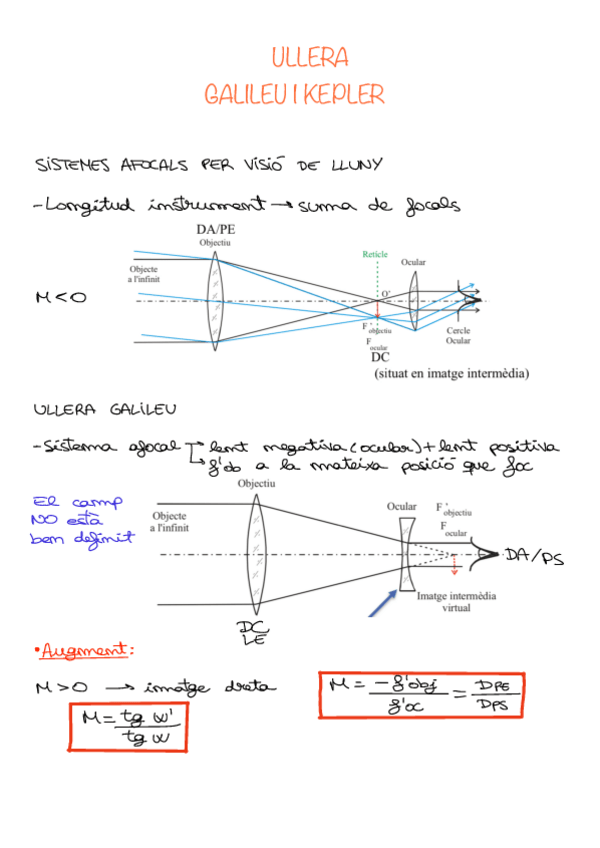 ULLERA
GALILEU I KEPLER
SISTEMES AFOCALS PER VISIÓ DE LLUNY
- Longitud instrument → suma de focals
DA/PE
Objectiu
Objecte
a l'infinit
Reticle
Ocular
M < 0
O'
F' objectiu
F ocular
DC
Cercle
Ocular
(situat en imatge intermèdia)
ULLERA GALILEU
- Sistema afocal → lent negativa (ocular) + lent positiva
↳ f'ob a la mateixa posició que foc
Objectiu
El camp
NO està
ben definit
Objecte
a l'infinit
Ocular
F' objectiu
F ocular
DA/PS
Imatge intermèdia
virtual
DC
LE
• Augment:
M > 0 → imatge dreta
M = -f'obj / f'oc = DPE / DPS
M = tg w' / tg w